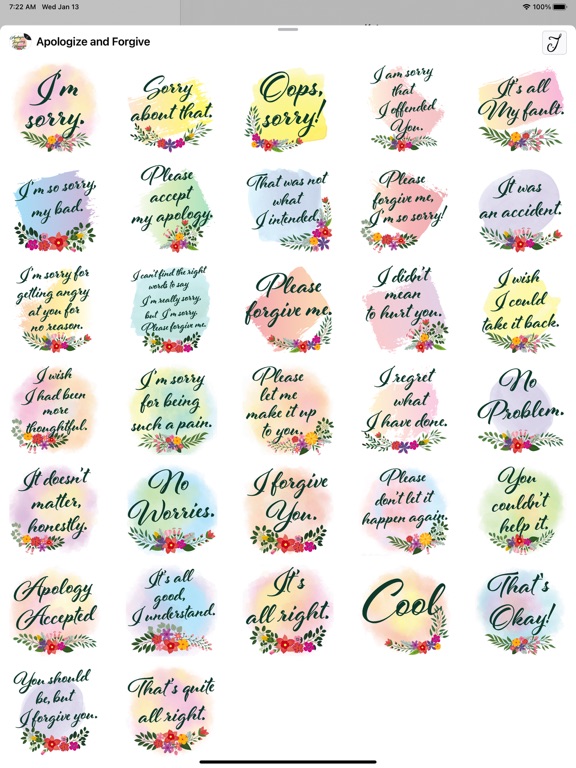 7:22 AM Wed Jan 13
100%
Apologize and Forgive
I'm
sorry.
Sorry
about that.
Oops,
sorry!
I am sorry
that
I offended
You.
It's all
My fault.
I'm so sorry,
my bad.
Please
accept
my apology.
That was not
what
I intended.
Please
forgive me,
I'm so sorry!
It was
an accident.
I'm sorry for
getting angry
at you for
no reason.
I can't find the right
words to say
I'm really sorry,
but I'm sorry.
Please forgive me.
Please
forgive me.
I didn't
mean
to hurt you.
I wish
I could
take it back.
I wish
I had been
more
thoughtful.
I'm sorry
for being
such a pain.
Please
let me
make it up
to you.
I regret
what
I have done.
No
Problem.
It doesn't
matter,
honestly.
No
Worries.
I forgive
You.
Please
don't let it
happen again.
You
couldn't
help it.
Apology
Accepted
It's all
good,
I understand.
It's
all right.
Cool
That's
Okay!
You should
be, but
I forgive you.
That's quite
all right.